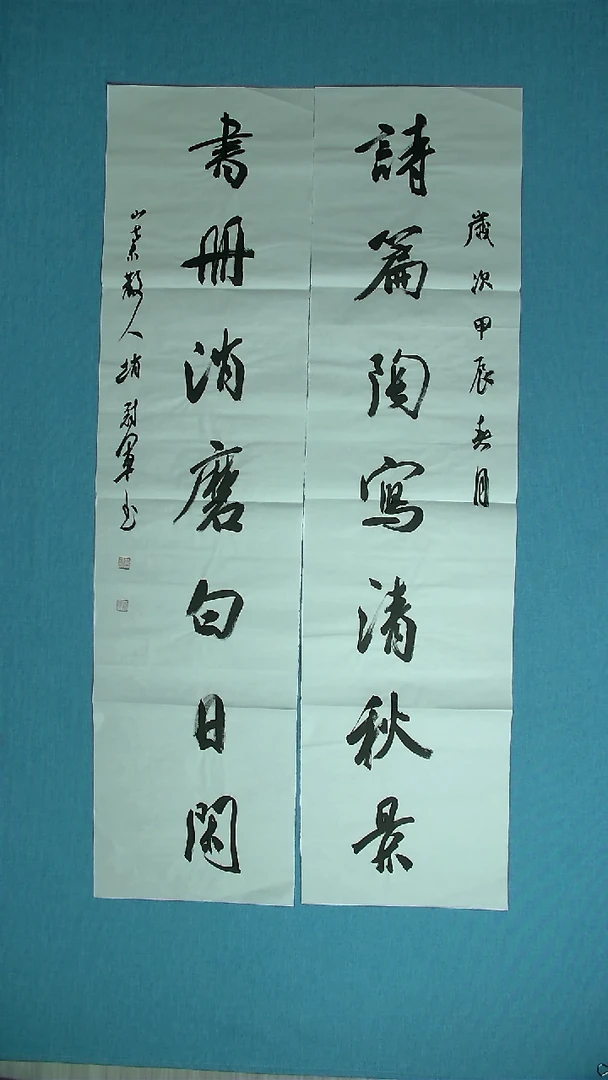 歲次甲辰春月
詩篇陶寫清秋景
書冊消磨白日閑
山東散人趙尉軍書